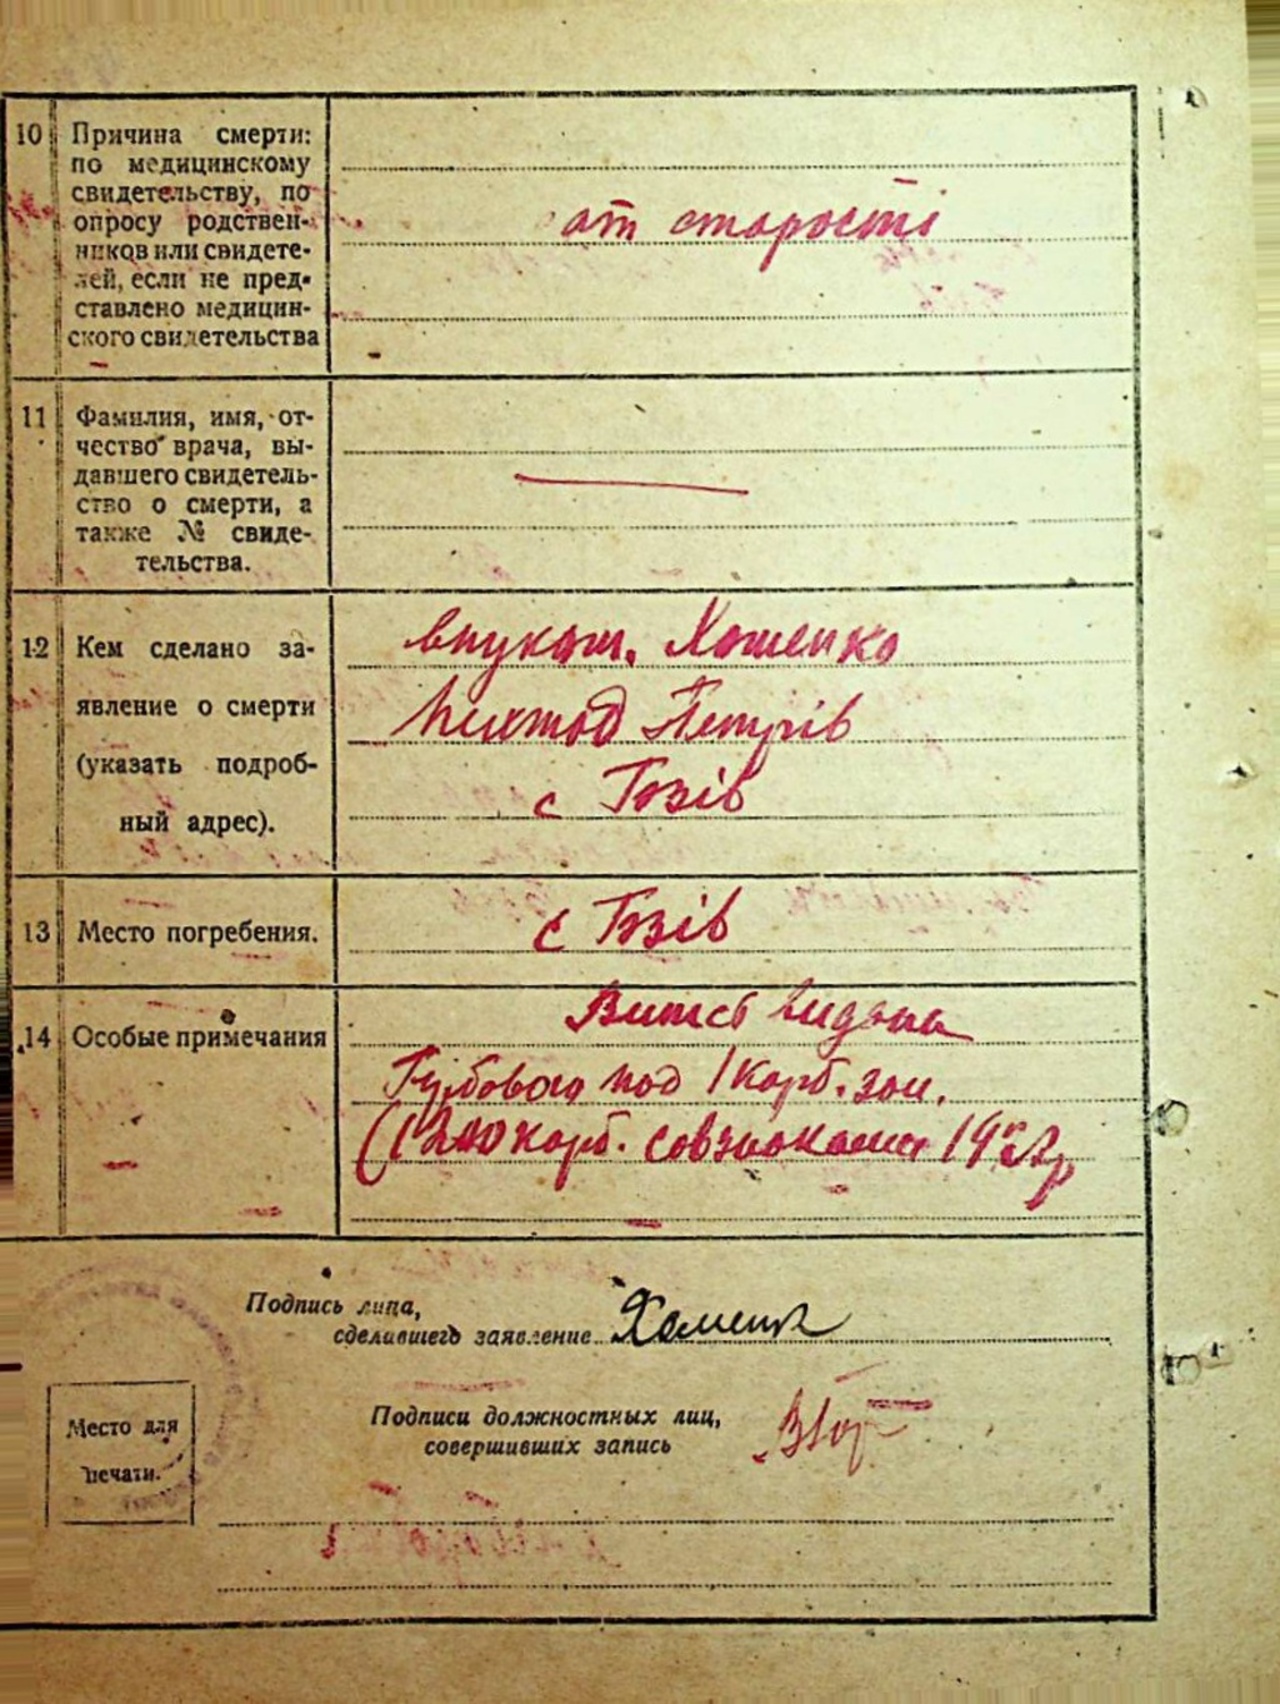 10 Причина смерти:
по медицинскому
свидетельству, по
опросу родствен-
ников или свидете-
лей, если не пред-
ставлено медицин-
ского свидетельства
от старості
11 Фамилия, имя, от-
чество врача, вы-
давшего свидетель-
ство о смерти, а
также № свиде-
тельства.
12 Кем сделано за-
явление о смерти
(указать подроб-
ный адрес).
внукам. Хоменко
Петрів
с Гозів
13 Место погребения.
с Гозів
14 Особые примечания
видана
под 1 карб. зол.
карб. совзнаками
Подпись лица,
сделавшего заявление
Подписи должностных лиц,
совершивших запись
Место для
печати.